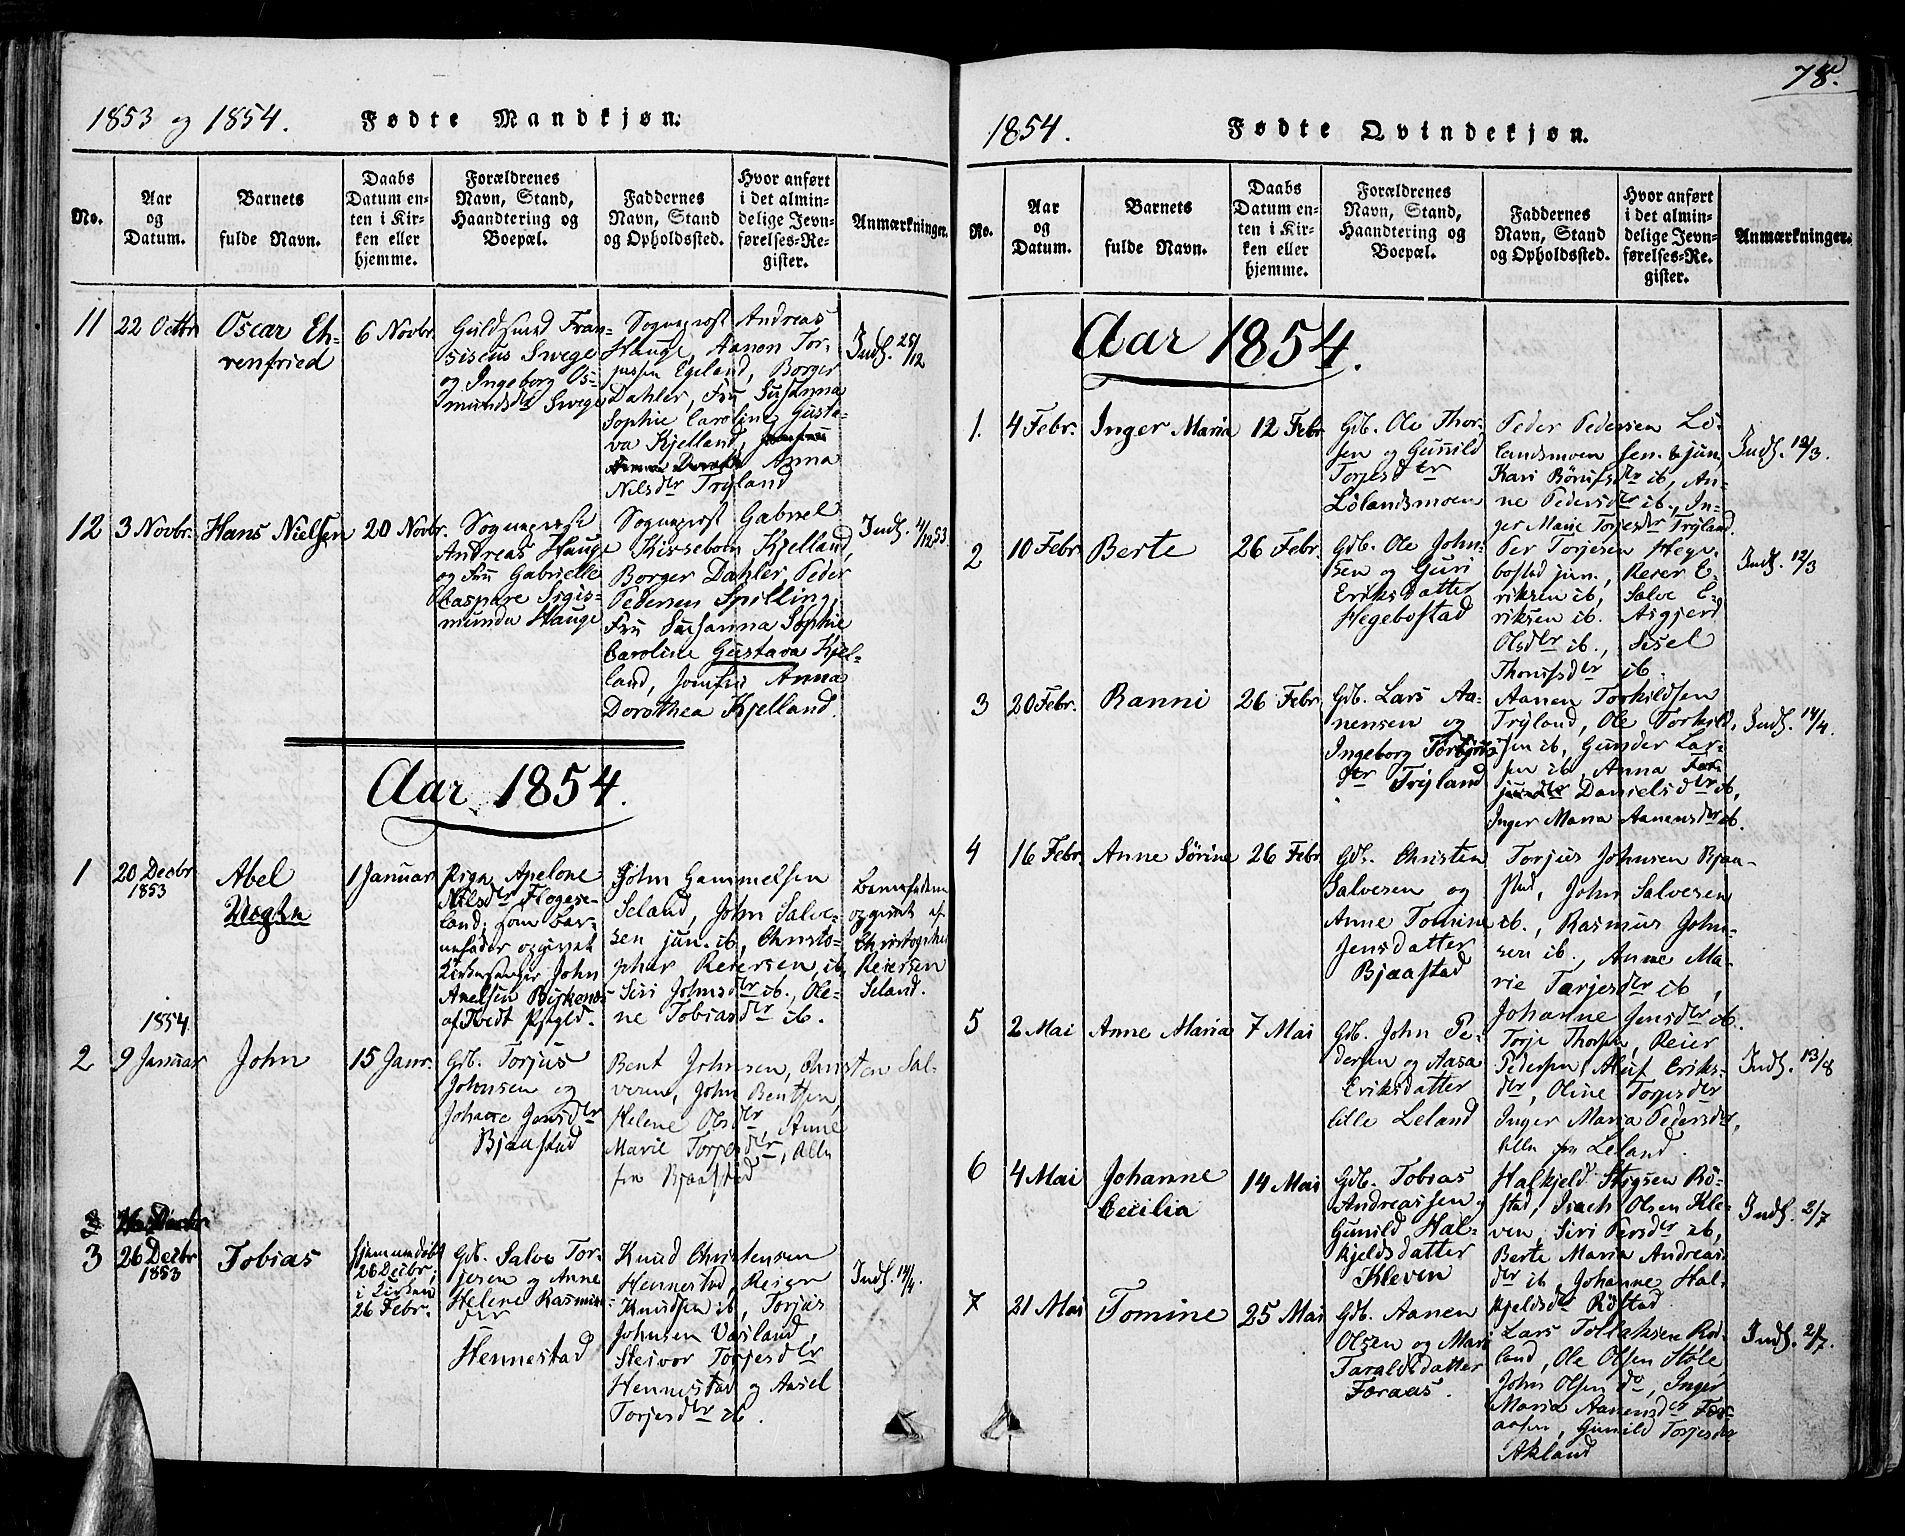 1853 og 1854. Fødte Mandkjøn.
No.
Aar
og
Datum.
Barnets
fulde Navn.
Daabs
Datum en-
ten i Kir-
ken eller
hjemme.
Forældrenes
Navn, Stand,
Haandtering og
Boepæl.
Faddernes
Navn, Stand
og Opholdssted.
Hvor anført
i det almin-
delige Jevn-
førelses-Re-
gister.
Anmærkninger.
11
22 Octbr
Oscar Eh-
renfried
6 Novbr
Guldsmed Fran-
siscus Swege
og Ingeborg Os-
mundsdr Swege
Sogneprest Andreas
Hauge, Aanon Tor-
jussen Egeland, Borger
Dahler, Fru Susanna
Sophie Caroline Gusta-
va Kjelland,
Anna
Nilsdr Tryland
Indf. 25/12
12
3 Novbr.
Hans Nielsen
20 Novbr.
Sogneprest
Andreas Hauge
og Fru Gabrielle
Caspare Sigis-
munda Hauge
Sogneprest Gabriel
Kirsebom Kjelland,
Borger Dahler, Peder
Pedersen Spilling,
Fru Susanna Sophie
Caroline Gustava Kjel-
land, Jomfru Anna
Dorothea Kjelland.
Indf. 4/12 53.
Aar 1854.
1
20 Decbr
1853
Abel
1 Januar
Piga Apelone
Nilsdr Flogese-
land, som bar-
nefader opgivet
Kirkesanger John
Axelsen Birkenes
af Tvedt Pstgld.
John Gammelsen
Seland, John Salve-
sen jun. ib, Christo-
pher Reiersen ib,
Siri Johnsdr ib., Ole-
ne Tobiasdr ib.
Barnefaderen
opgivet af
Christopher
Reiersen
Seland.
1854
2
9 Januar
John
15 Janr.
Gdb. Torjus
Johnsen og
Johanne Jensdr
Bjaastad
Bent Johnsen, Christen Sal-
vesen, John Bentsen,
Helene Olsdr, Anne
Marie Torjesdr, Alle
fra Bjaastad
3
26 Decbr
1853
Tobias
Hjemmedøbt
26 Decbr,
i Kirken
26 Febr.
Gdb. Salve Tor-
jesen og Anne
Helene Rasmus-
dr
Hennestad
Knud Christensen
Hennestad, Reier
Knudsen ib, Torjus
Johnsen Vasland,
Steivor Torjesdr
Hennestad og Aasel
Torjesdr ib.
Indf. 14/4.
78.
1854. Fødte Qvindekjøn.
No.
Aar
og
Datum.
Barnets
fulde Navn.
Daabs
Datum en-
ten i Kir-
ken eller
hjemme.
Forældrenes
Navn, Stand,
Haandtering og
Boepæl.
Faddernes
Navn, Stand
og Opholdssted.
Hvor anført
i det almin-
delige Jevn-
førelses-Re-
gister.
Anmærkninger.
Aar 1854.
1.
4 Febr.
Inger Maria
12 Febr
Gdb. Ole Thor-
sen og Gunild
Torjesdr
Lølandsmoen
Peder Pedersen Lø-
landsmoen sen. & jun,
Kari Børufsdr ib, An-
ne Pedersdr ib., In-
ger Marie Torjesdr Tryland.
Indf. 12/3.
2
10 Febr
Berte
26 Febr.
Gdb. Ole John-
sen og Guri
Eriksdatter
Hegebostad
Per Torjesen Hege-
bostad jun., Reier E-
riksen ib, Salve E-
riksen ib. Asgjerd
Olsdr ib., Sisel
Thorufsdr ib.
Indf. 12/3
3
20 Febr.
Ranni
26 Febr
Gdb. Lars Aa-
nensen og
Ingeborg Torjus-
dr Tryland
Aanen Torkildsen
Tryland, Ole Torkild-
sen ib, Gunder Lar-
sen ib, Anna
Danielsdr ib,
Inger Maria Aanensdr ib.
Indf. 14/4.
4
16 Febr.
Anne Sørine
26 Febr
Gdb. Christen
Salvesen og
Anne Tomine
Jensdatter
Bjaastad
Torjus Johnsen Bjaa-
stad, John Salvesen
ib., Rasmus John-
sen ib., Anne Ma-
rie Tarjesdr ib,
Johanne Jensdr ib.
5
2 Mai
Anne Maria
7 Mai
Gdb. John Pe-
dersen og Aasa
Eriksdatter
lille Leland
Torje Thorsen, Reier
Pedersen, Aluf Eriks-
dr, Oline Torjesdr
Inger Maria Pedersdr,
Alle fra Leland.
Indf. 13/8
6
4 Mai
Johanne
Cecilia
14 Mai
Gdb. Tobias
Andreassen og
Gunild Hal-
kjeldsdatter
Kleven
Halkjeld Stigsen Rø-
stad, Isach Olsen Kle-
ven, Siri Persdr ib,
Berte Maria Andreas-
dr ib, Johanne Hal-
kjeldsdr Røstad
Indf. 2/7
7
21 Mai
Tomine
25 Mai
Gdb. Aanen
Olsen og Mari
Taraldsdatter
Faraas.
Lars Tollaksen Rod-
land, Ole Olsen Støle
John Olsen do, Inger
Maria Aanensdr
Gunild Torjesdr
Akland
Indf. 2/7.